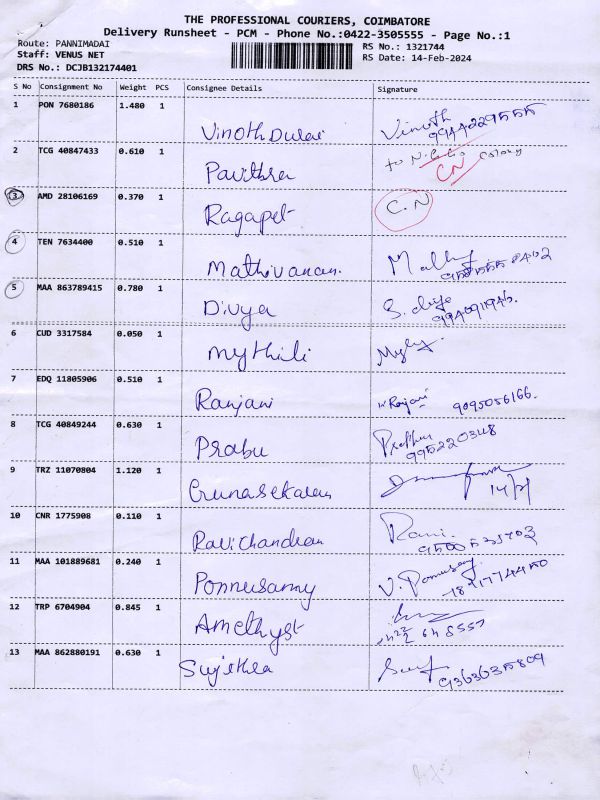 THE PROFESSIONAL COURIERS, COIMBATORE
Delivery Runsheet - PCM - Phone No.:0422-3505555 - Page No.:1
Route: PANNIMADAI RS No.: 1321744
Staff: VENUS NET RS Date: 14-Feb-2024
DRS No.: DCJB132174401
S No Consignment No Weight PCS Consignee Details Signature
1 PON 7680186 1.480 1 Vinoth Durai Vinoth
9944229555
2 TCG 40847433 0.610 1 Pavithra to Colony
CN
3 AMD 28106169 0.370 1 Ragapet C.N
4 TEN 7634400 0.510 1 Mathivanan.
5 MAA 863789415 0.780 1 Divya
9940911946.
6 CUD 3317584 0.050 1 Mythili
7 EDQ 11805906 0.510 1 Ranjani Ranjani 9095056166.
8 TCG 40849244 0.630 1 Prabu
9952203 48
9 TRZ 11070804 1.120 1 Gunasekaran
14/2
10 CNR 1775908 0.110 1 Ravichandran Ravi.
11 MAA 101889681 0.240 1 Ponnusamy V. Ponnusamy
12 TRP 6704904 0.845 1 Amethyst
13 MAA 862880191 0.630 1 Sujithra
9363635809